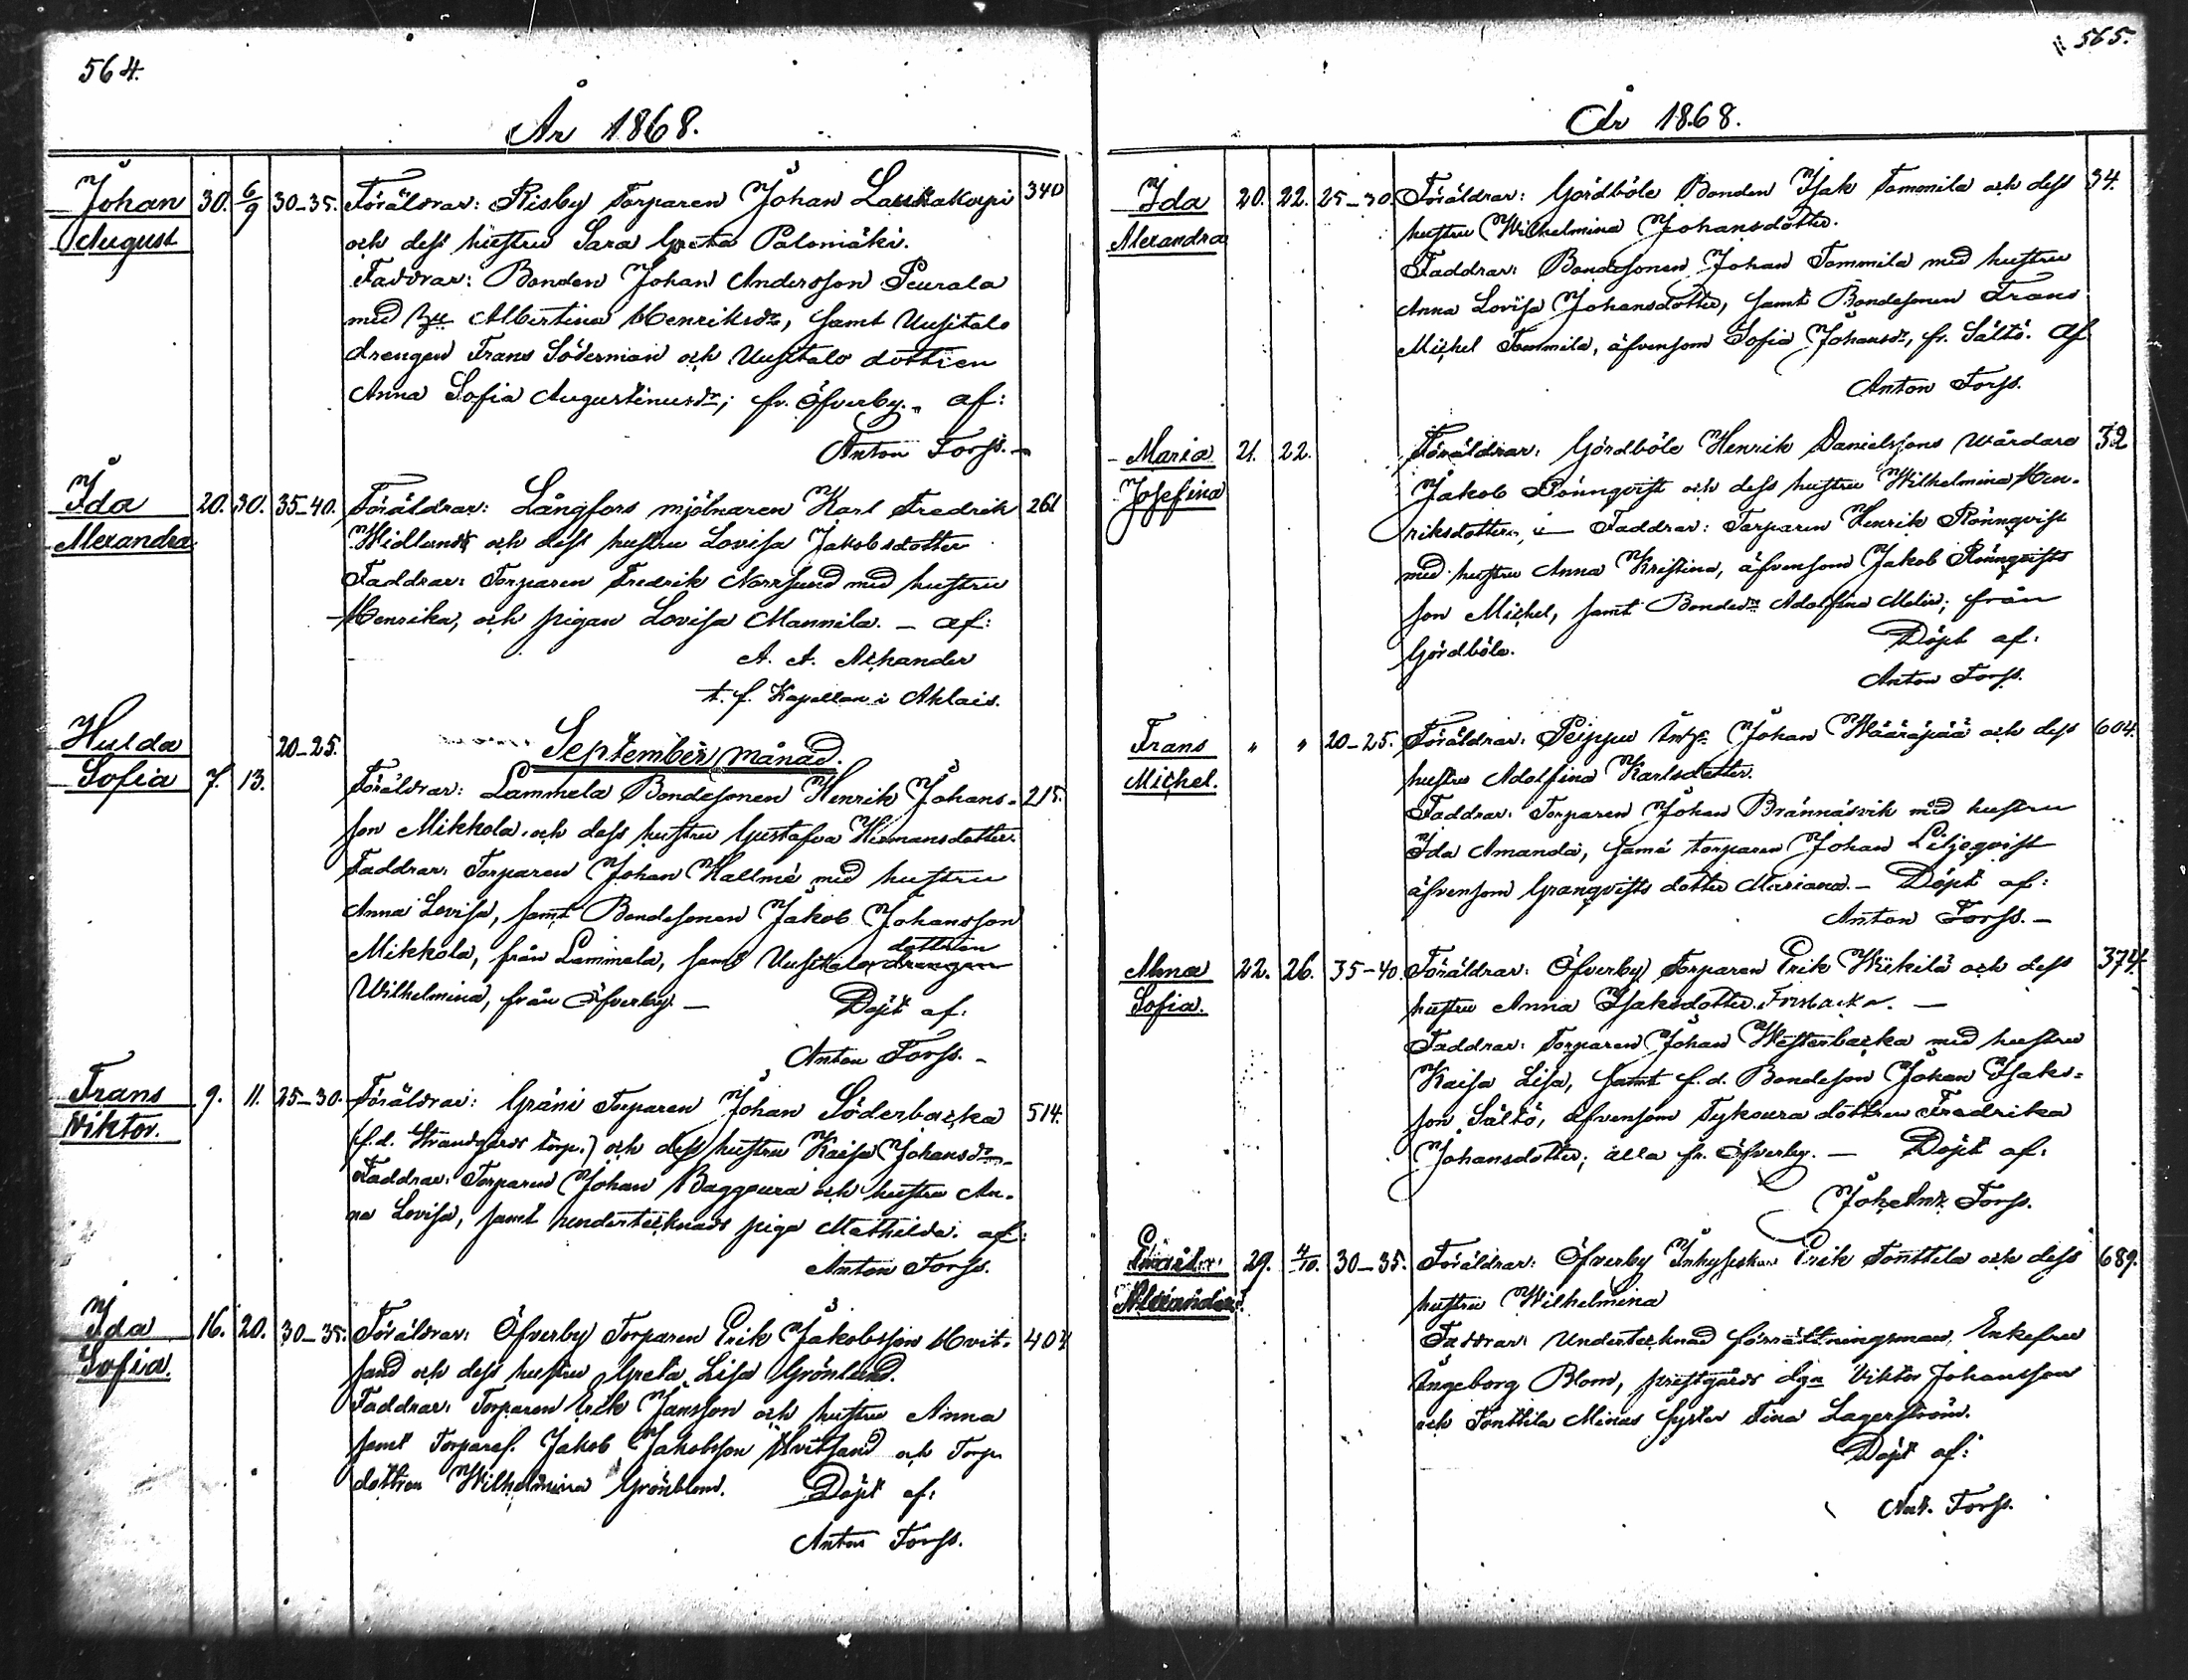 564.
År 1868.
Johan August 30. 6/9 30-35. Föräldrar: Risby Torparen Johan Laukakorpi 340
och dess hustru Sara Greta Palomäki.
Faddrar: Bonden Johan Andersson Peurala
med hu Albertina Henriksdr, samt Uusitalo
drengen Frans Söderman och Uusitalo dottren
Anna Sofia Augustinusdr; fr. Öfverby. af:
Anton Forss. –
Ida Alexandra 20. 30. 35-40. Föräldrar: Långfors mjölnaren Karl Fredrik 261
Widlund och dess hustru Lovisa Jakobsdotter
Faddrar: Torparen Fredrik Norrsund med hustru
Henrika, och pigan Lovisa Mannila. – af:
A. A. Achander
t. f. Kapellan i Ahlais.
September månad.
Hulda Sofia 7. 13. 20-25. Föräldrar: Lammela Bondesonen Henrik Johans- 215.
son Mikkola och dess hustru Gustafva Hermansdotter.
Faddrar: Torparen Johan Hallmé med hustru
Anna Lovisa, samt Bondesonen Jakob Johansson
Mikkola, från Lammela, samt Uusitalo drengen dottren
Wilhelmina, från Öfverby. – Döpt af:
Anton Forss. –
Frans Viktor. 9. 11. 25-30. Föräldrar: Gräni Torparen Johan Söderbacka 514.
(f.d. Strandgårds torp.) och dess hustru Kaisa Johansdr.
Faddrar: Torparen Johan Baggoura och hustru An-
na Lovisa, samt undertecknads piga Mathilda. af:
Anton Forss.
Ida Sofia. 16. 20. 30-35. Föräldrar: Öfverby Torparen Erik Jakobsson Hvit- 404
sand och dess hustru Greta Lisa Grönlund.
Faddrar: Torparen Erik Jansson och hustru Anna
samt Torpares. Jakob Jakobsson Hvitsand och Torp.
dottren Wilhelmina Grönblom. Döpt af:
Anton Forss.
565.
År 1868.
Ida Alexandra 20. 22. 25-30. Föräldrar: Gördböle Bonden Isak Tommila och dess 34.
hustru Wilhelmina Johansdotter.
Faddrar: Bondesonen Johan Tommila med hustru
Anna Lovisa Johansdotter, samt Bondesonen Frans
Michel Tommila, äfvensom Sofia Johansdr, fr. Sältö. Af
Anton Forss.
Maria Josefina 21. 22. Föräldrar: Gördböle Henrik Danielssons vårdare 32
Jakob Rönnqvist och dess hustru Wilhelmina Hen-
riksdotter. Faddrar: Torparen Henrik Rönnqvist
med hustru Anna Kristina, äfvensom Jakob Rönnqvists
son Michel, samt Bondedr Adolfina Melin; från
Gördböle. Döpt af:
Anton Forss.
Frans Michel. " " 20-25. Föräldrar: Peippu Inhs. Johan Wääräpää och dess 604.
hustru Adolfina Karlsdotter.
Faddrar: Torparen Johan Brännäsvik med hustru
Ida Amanda, samt torparen Johan Liljeqvist
äfvensom Granqvists dotter Mariana. – Döpt af:
Anton Forss. –
Alma Sofia. 22. 26. 35-40. Föräldrar: Öfverby Torparen Erik Wiikilä och dess 374.
hustru Anna Isaksdotter. Forsbacka. –
Faddrar: Torparen Johan Westerbacka med hustru
Kaisa Lisa, samt f.d. Bondeson Johan Isaks-
son Sältö, äfvensom Tykoura dottren Fredrika
Johansdotter; alla fr. Öfverby. – Döpt af:
Joh. Ant. Forss.
Alexander. 29. 4/10. 30-35. Föräldrar: Öfverby Inhyseskar Erik Tonttila och dess 689.
hustru Wilhelmina
Faddrar: Undertecknad förrättningsman, Enkefru
Ingeborg Blom, prestgårds dgn Viktor Johansson
och Tonttila Minas syster Fina Lagerström.
Döpt af:
Ant. Forss.